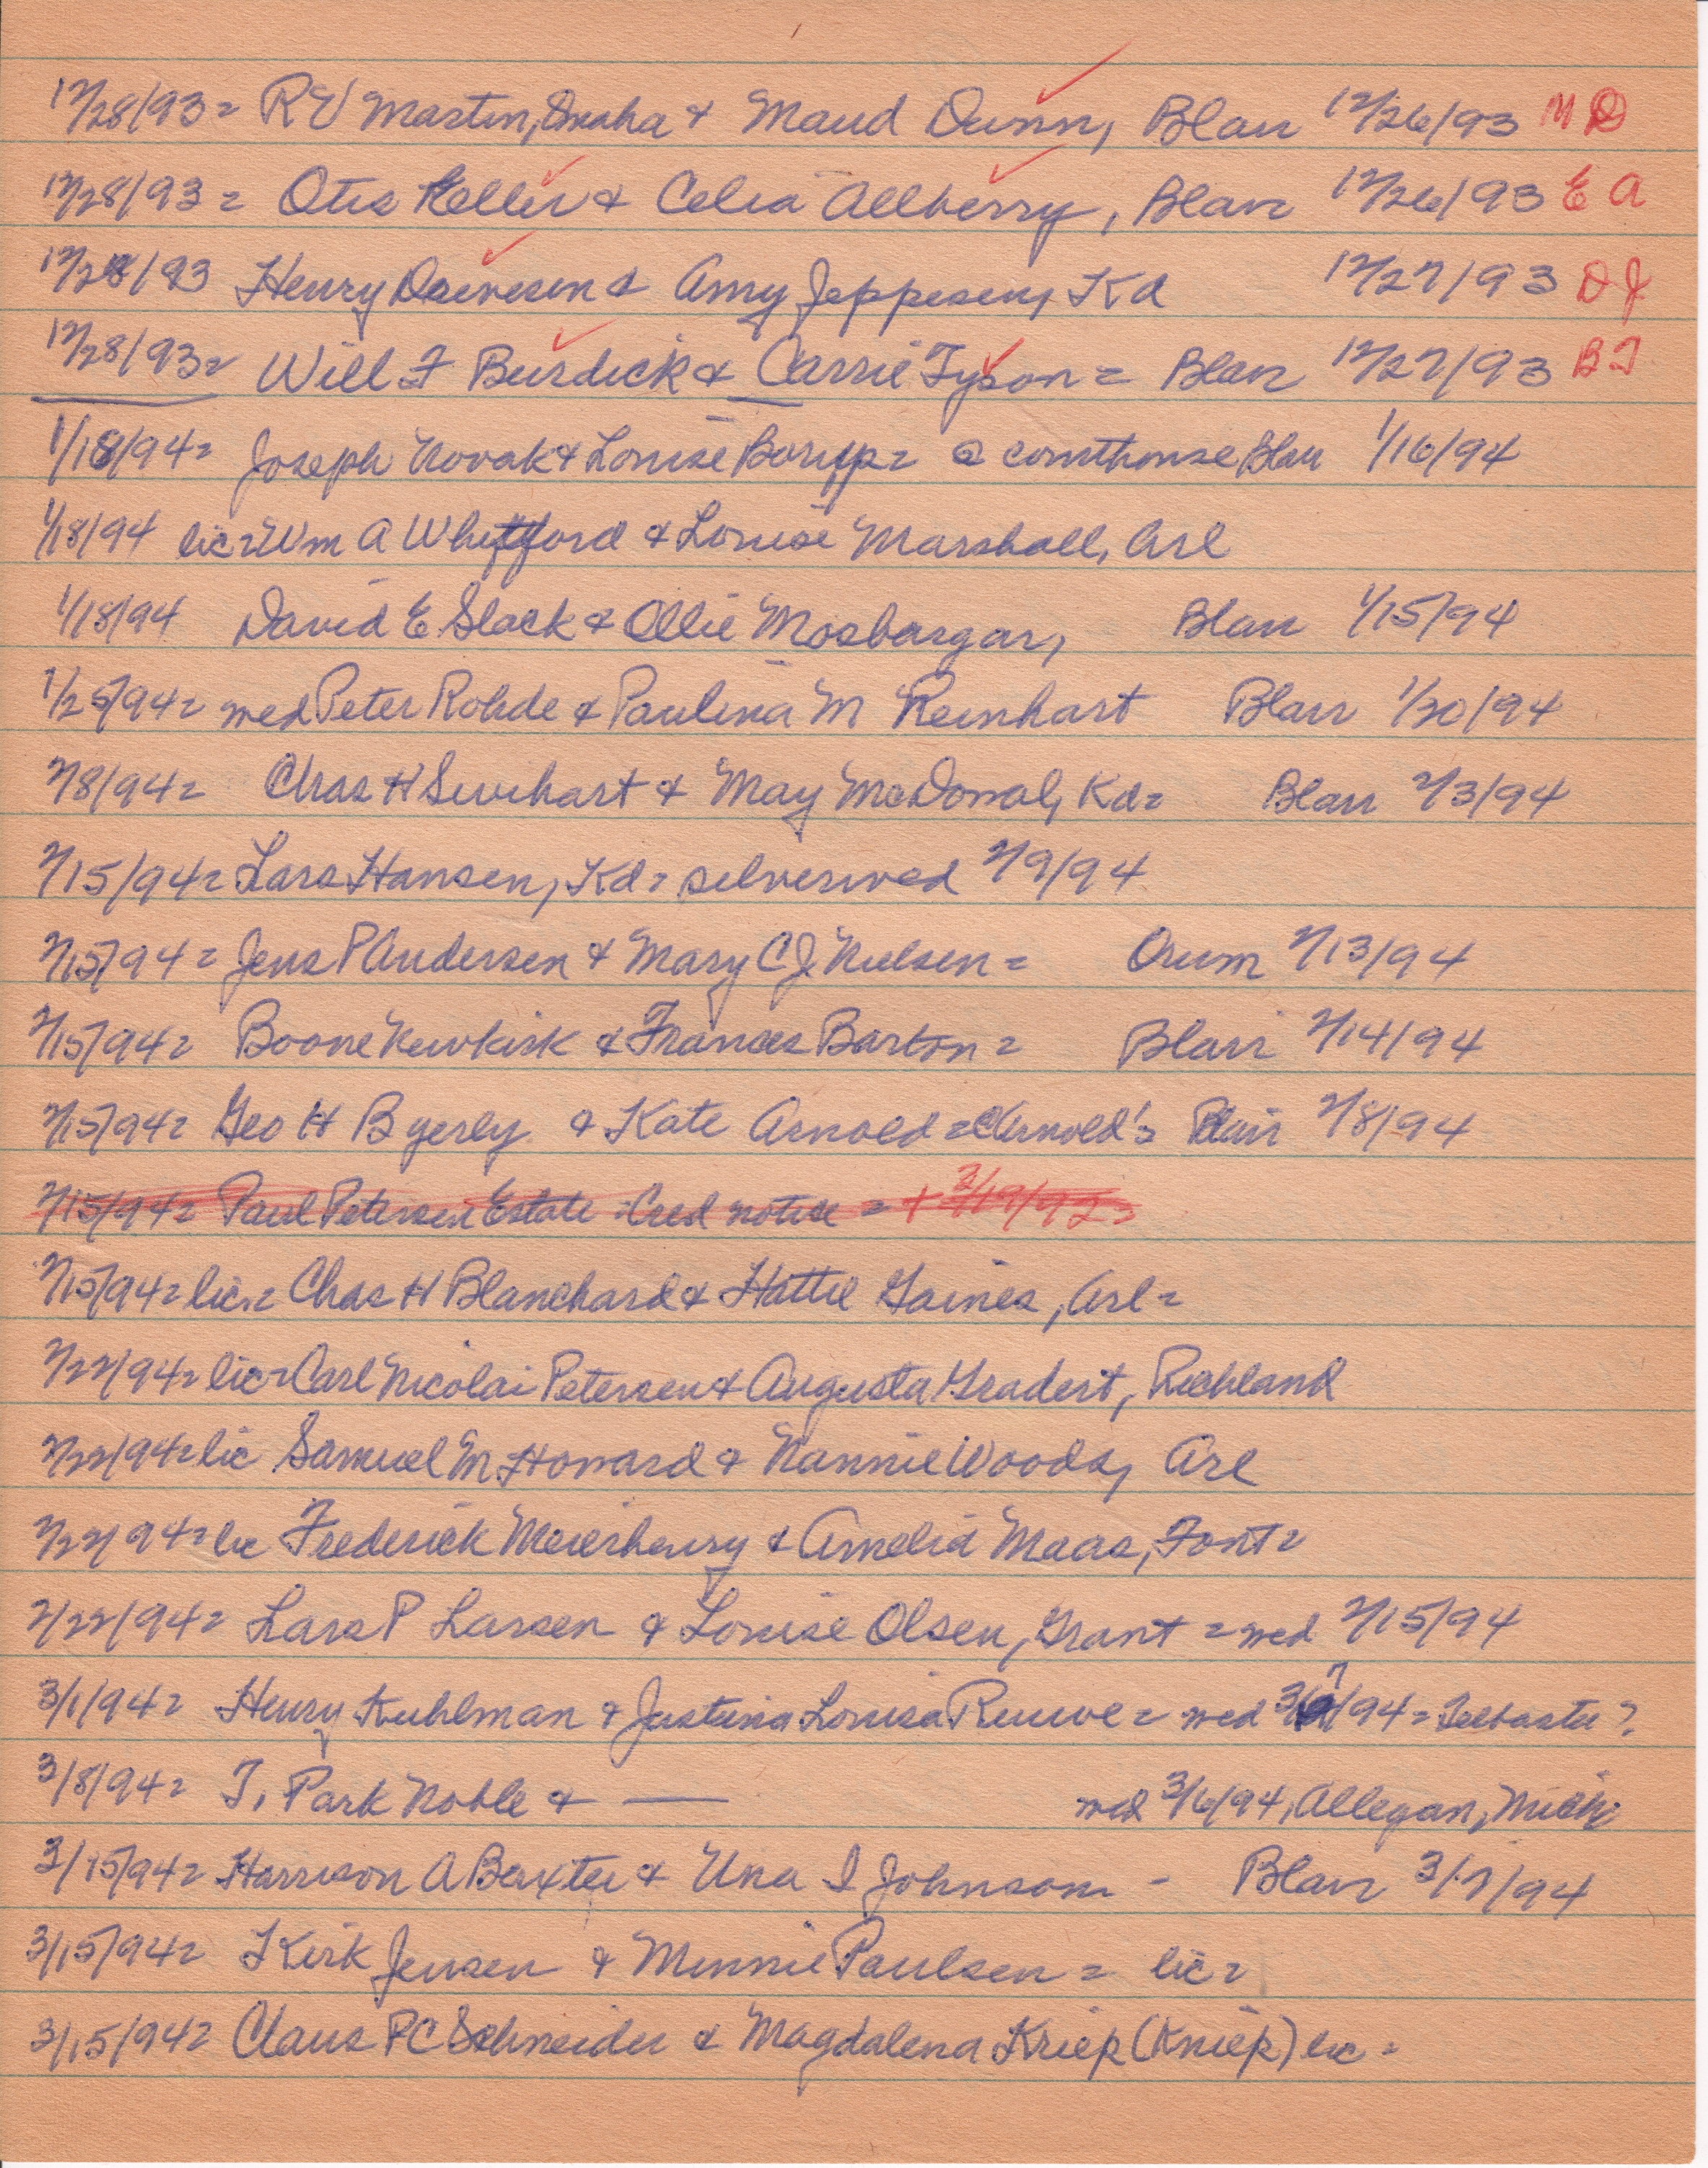 12/28/93 = R E Martin, Omaha & Maud Dunn, Blair 12/26/93 M D
12/28/93 = Otis Keller & Celia Allberry, Blair 12/26/93 E A
12/28/93 Henry & Amy Jeppesen, Kd 12/27/93 D J
12/28/93 = Will F Burdick & Carrie Tyson = Blair 12/27/93 B T
1/18/94 = Joseph Novak & Louise Borupp = @ courthouse Blair 1/16/94
1/18/94 lic = Wm A Whitford & Louise Marshall, Arl
1/18/94 David E Slack & Ollie Mosbargar, Blair 1/15/94
1/25/94 = wed Peter Rohde & Paulina M Reinhart Blair 1/20/94
2/8/94 = Chas H Swihart & May McDonal, Kd = Blair 2/3/94
2/15/94 = Lars Hansen, Kd = silver wed 2/9/94
2/15/94 = Jens P Andersen & Mary C J Nielsen = Orum 2/13/94
2/15/94 = Boone Newkirk & Frances Barton = Blair 2/14/94
2/15/94 = Geo H Byerly & Kate Arnold = @ Arnold's Blair 2/8/94
2/15/94 = Paul Petersen Estate = Cred notice = + 2/19/92 =
2/15/94 = lic. = Chas H Blanchard & Hattie Gaines, Arl =
2/22/94 = lic = Carl Nicolai Petersen & Augusta Gradert, Richland
2/22/94 = lic Samuel M Howard & Nannie Woods, Arl
2/22/94 = lic Frederick Meierhenry & Amelia Maas, Font =
2/22/94 = Lars P Larsen & Louise Olsen, Grant = wed 2/15/94
3/1/94 = Henry Kuhlman & Justina Louisa Ruwe = wed 3/7/94 = Telbasta ?
3/8/94 = T. Park Noble & —— wed 3/6/94, Allegan, Mich
3/15/94 = Harrison A Baxter & Una I Johnson - Blair 3/7/94
3/15/94 = T Kirk Jensen & Minnie Paulsen = lic =
3/15/94 = Claus P C Schneider & Magdalena Kriep (Kniep) lic =